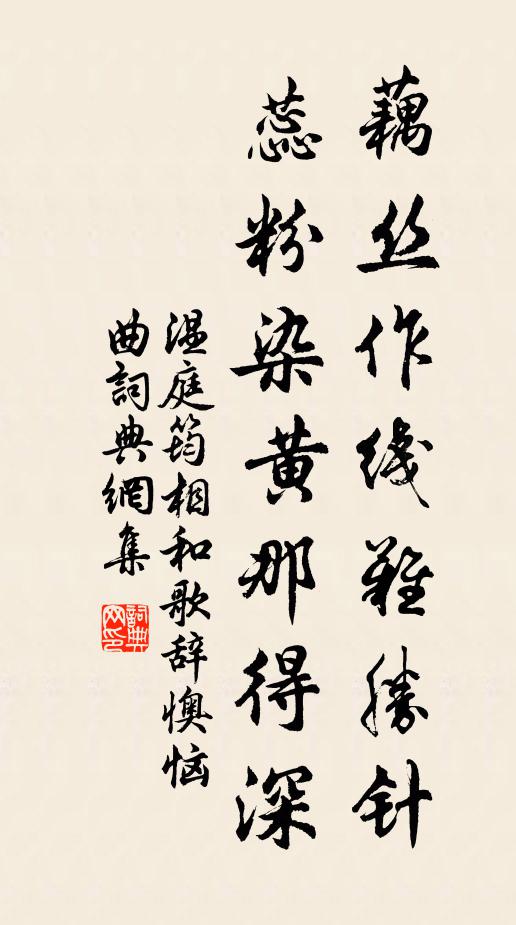 藕丝作线难胜针
蕊粉染黄那得深
温庭筠相和歌辞懊恼
曲詞典網集
詞典网印